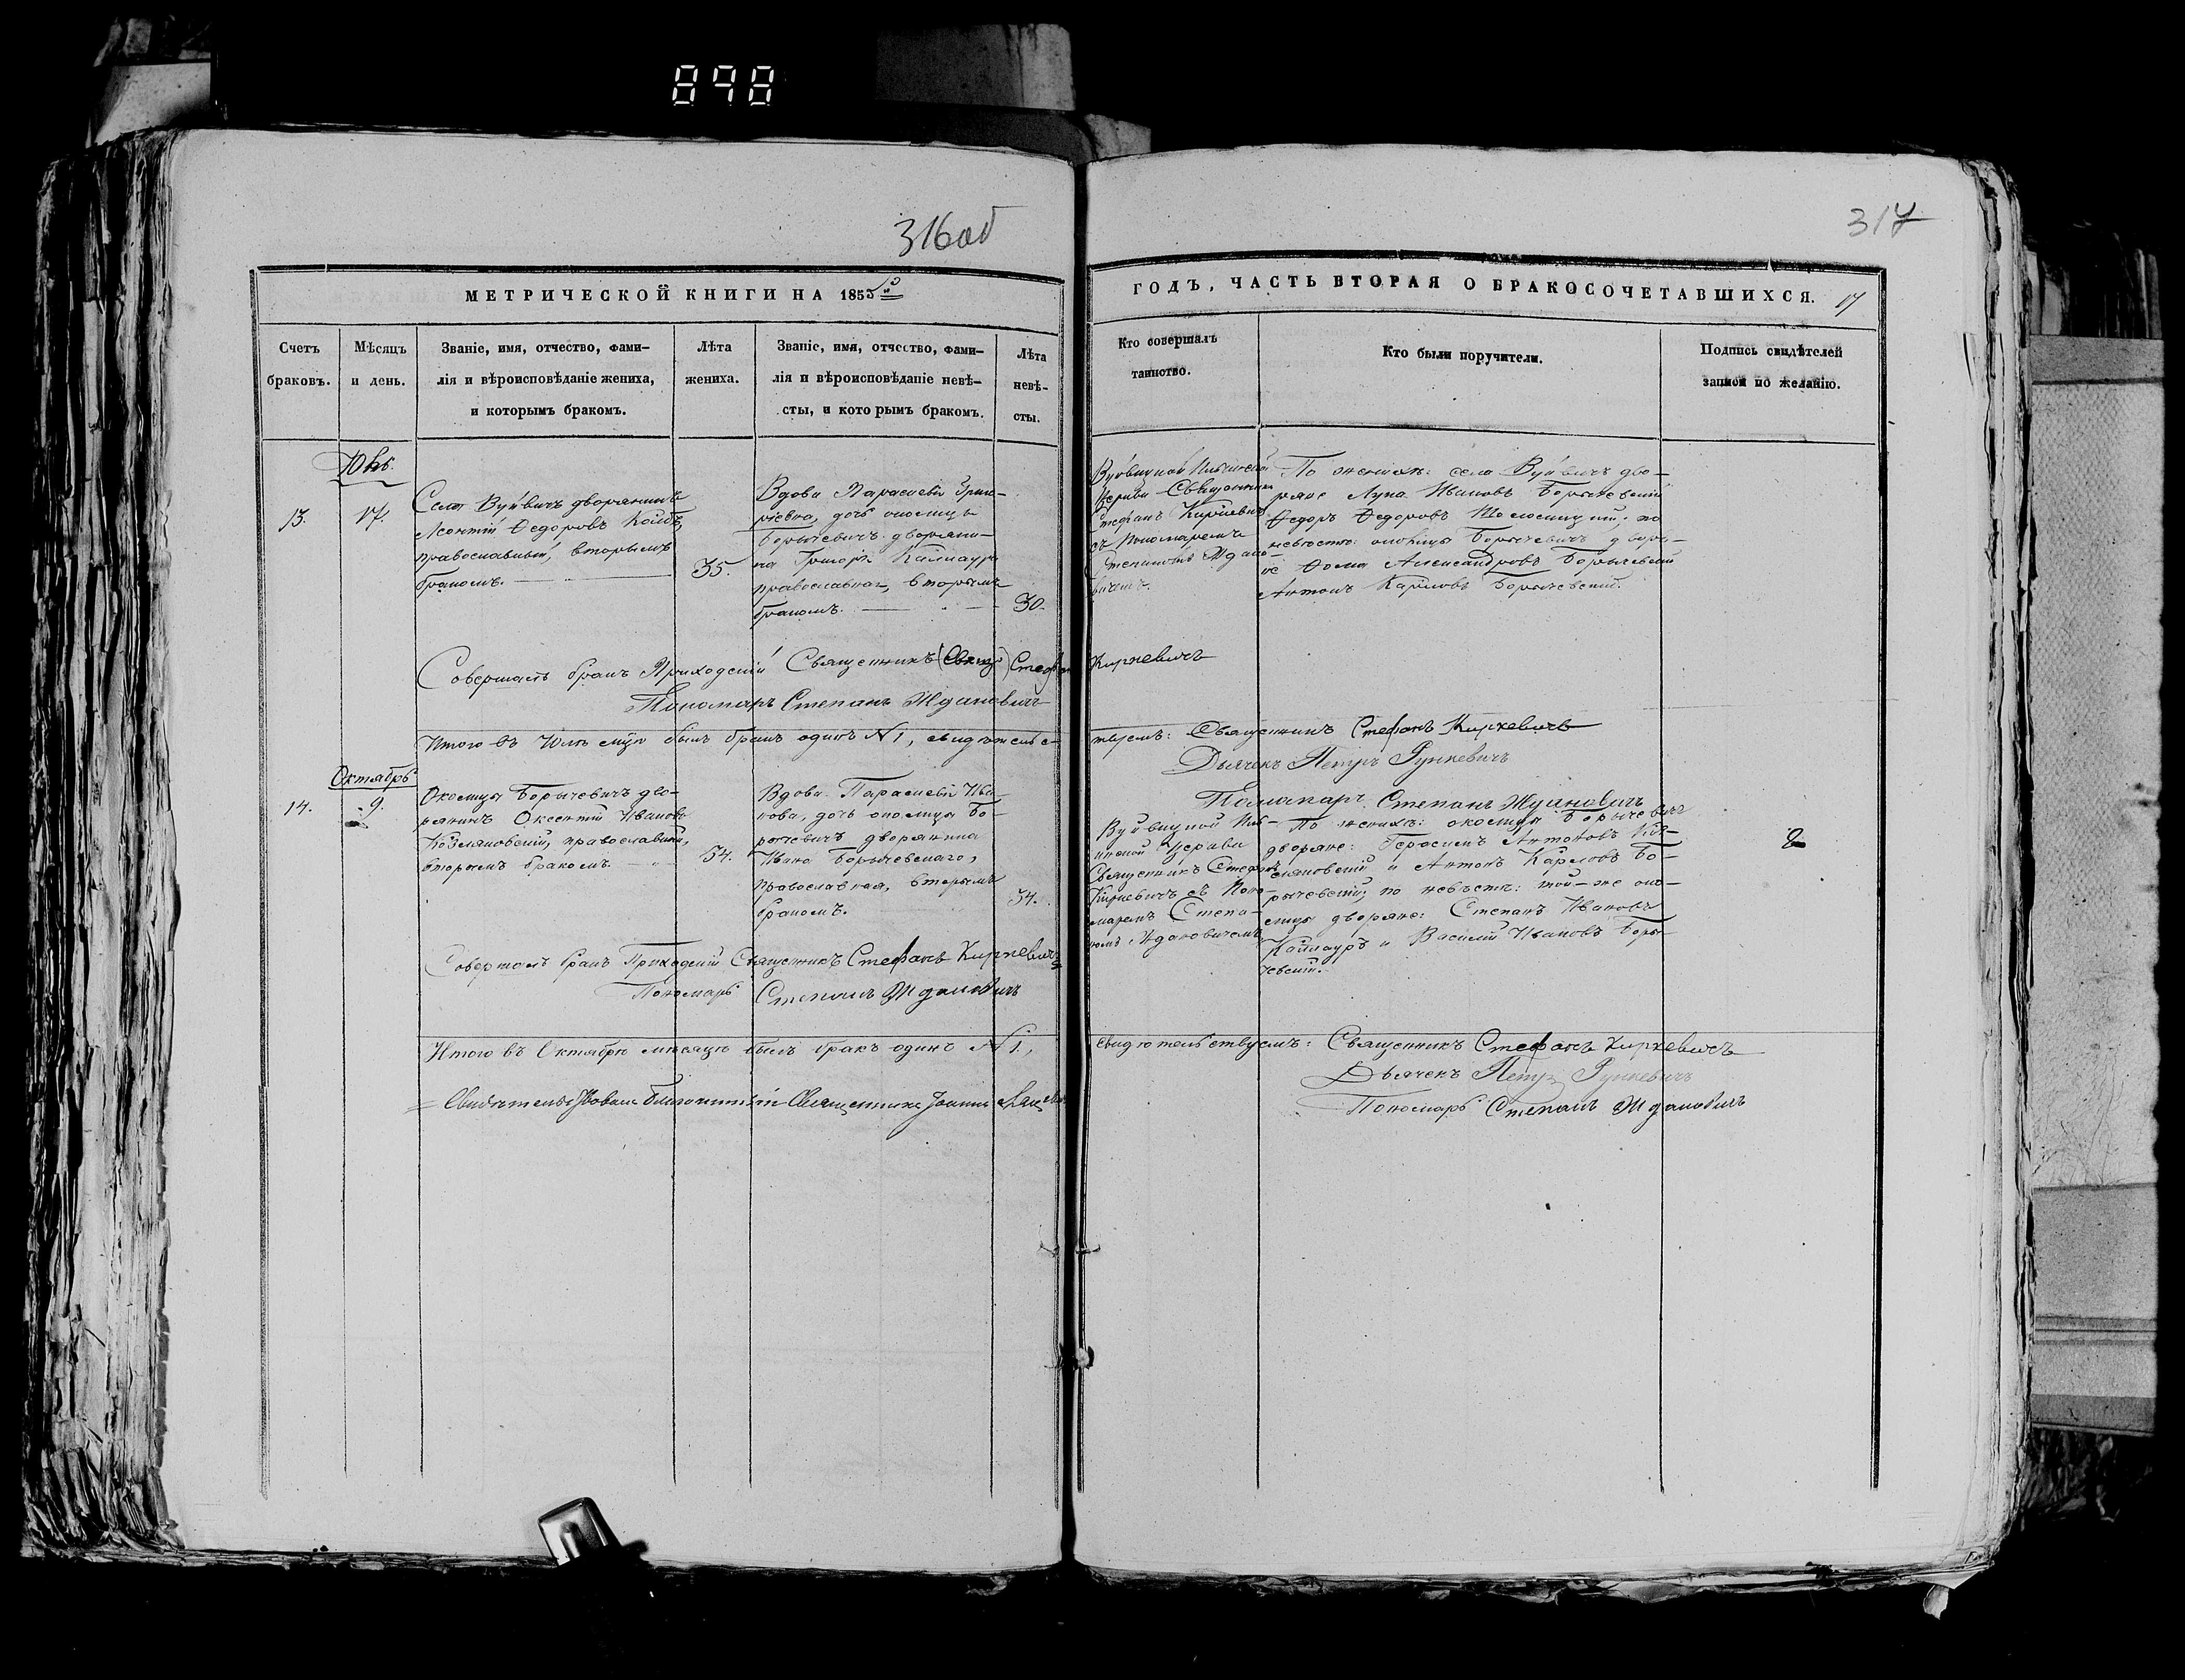 898
316об
317
МЕТРИЧЕСКОЙ КНИГИ НА 1855й
ГОДЪ, ЧАСТЬ ВТОРАЯ О БРАКОСОЧЕТАВШИХСЯ.
Счетъ
браковъ.
Мѣсяцъ
и день.
Званіе, имя, отчество, фами-
лія и вѣроисповѣданіе жениха,
и которымъ бракомъ.
Лѣта
жениха.
Званіе, имя, отчество, фами-
лія и вѣроисповѣданіе невѣ-
сты, и кото рымъ бракомъ.
Лѣта
невѣ-
сты.
Кто совершалъ
таинство.
Кто были поручители.
Подпись свидѣтелей
записи по желанію.
13.
17.
Села Вуйвичъ дворянинъ
Леонтій Ѳедоровъ
православный, вторымъ
бракомъ.
35.
Вдова Параскева Григо-
ріевна, дочь околицы
Борычевичъ дворяни-
на Григорія Каллаура
православная, вторымъ
бракомъ.
30.
Вуйвицкой
Церкви Священникъ
Стефанъ Киркевичъ
съ Пономаремъ
Степаномъ Ждано-
вичемъ.
По женихѣ: села Вуйвичъ дво-
ряне Лука Ивановъ Борычевскій
Ѳедоръ Ѳедоровъ по
невѣстѣ: околицы Борычевичъ дворя-
не Ѳома Александровъ Борычевскій
Антонъ Карповъ Борычевскій.
Совершалъ бракъ Приходскій Священникъ Стефанъ Киркевичъ
Пономарь Степанъ Ждановичъ
Итого въ былъ бракъ одинъ №1, свидѣтельс-
твуемъ: Священникъ Стефанъ Киркевичъ
Дьячекъ Петръ Рункевичъ
Пономарь Степанъ Ждановичъ
Октябрь
14.
9.
Околицы Борычевичъ дво-
рянинъ Оксентій Ивановъ
Козляковскій, православный,
вторымъ бракомъ.
54.
Вдова Параскева Ива-
нова, дочь околицы Бо-
рычевичъ дворянина
Ивана Борычевскаго,
православная, вторымъ
бракомъ.
34.
Вуйвицкой
Церкви
Священникъ Стефанъ
Киркевичъ съ Поно-
маремъ Степа-
номъ Ждановичемъ
По женихѣ: околицы Борычевичъ
дворяне: Герасимъ Антоновъ Коз-
ляковскій и Антонъ Карповъ Бо-
рычевскій; по невѣстѣ: той-же око-
лицы дворяне: Степанъ Ивановъ
Каллауръ и Василій Ивановъ Боры-
чевскій.
Совершалъ бракъ Приходскій Священникъ Стефанъ Киркевичъ
Пономарь Степанъ Ждановичъ
Итого въ Октябрѣ мѣсяцѣ былъ бракъ одинъ №1,
свидѣтельствуемъ: Священникъ Стефанъ Киркевичъ
Дьячекъ Петръ Рункевичъ
Пономарь Степанъ Ждановичъ
Свидѣтельствовалъ Благочинный Священникъ Іоаннъ